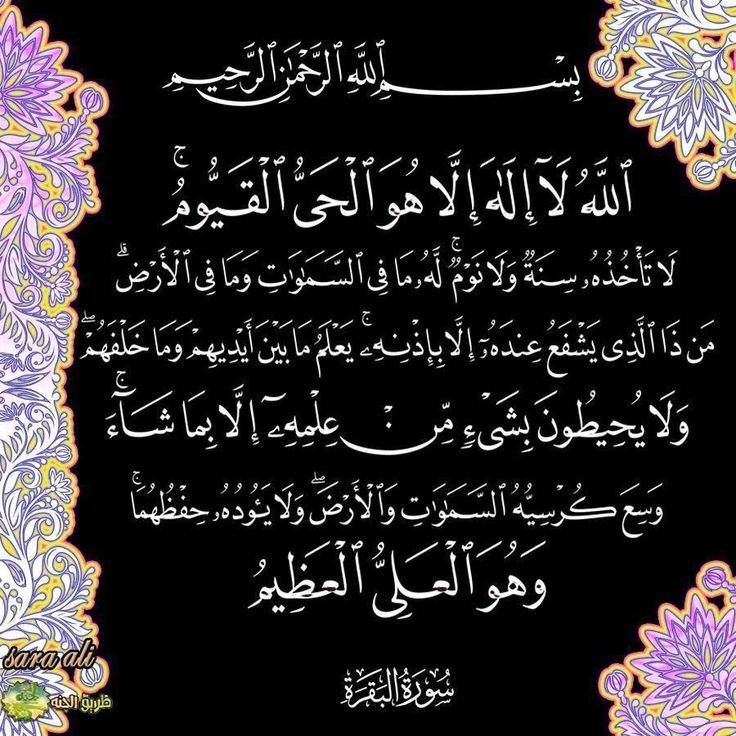 بِسْمِ ٱللَّهِ ٱلرَّحْمَٰنِ ٱلرَّحِيمِ
ٱللَّهُ لَآ إِلَٰهَ إِلَّا هُوَ ٱلْحَىُّ ٱلْقَيُّومُ ۚ
لَا تَأْخُذُهُۥ سِنَةٌ وَلَا نَوْمٌ ۚ لَّهُۥ مَا فِى ٱلسَّمَٰوَٰتِ وَمَا فِى ٱلْأَرْضِ ۗ
مَن ذَا ٱلَّذِى يَشْفَعُ عِندَهُۥٓ إِلَّا بِإِذْنِهِۦ ۚ يَعْلَمُ مَا بَيْنَ أَيْدِيهِمْ وَمَا خَلْفَهُمْ ۖ
وَلَا يُحِيطُونَ بِشَىْءٍ مِّنْ عِلْمِهِۦٓ إِلَّا بِمَا شَآءَ ۚ
وَسِعَ كُرْسِيُّهُ ٱلسَّمَٰوَٰتِ وَٱلْأَرْضَ ۖ وَلَا يَـُٔودُهُۥ حِفْظُهُمَا ۚ
وَهُوَ ٱلْعَلِىُّ ٱلْعَظِيمُ
سُورَةُ البَقَرَةِ
sara ali
طريق الجنه